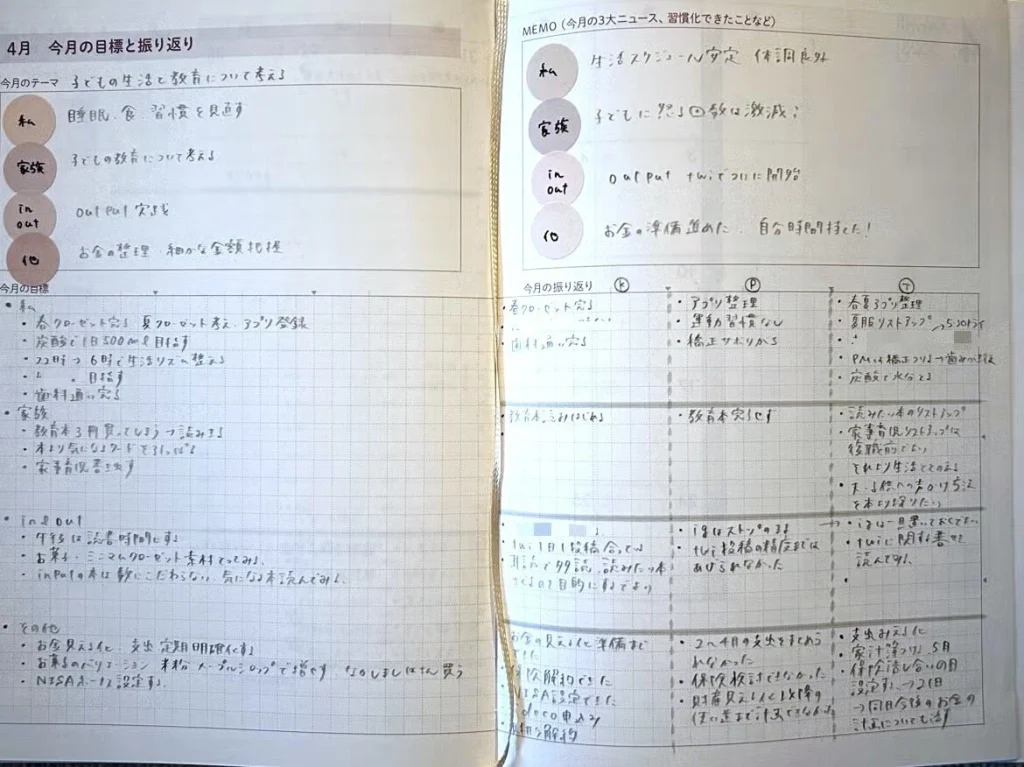 4月 今月の目標と振り返り
今月のテーマ 子どもの生活と教育について考える
私 睡眠、食、習慣を見直す
家族 子どもの教育について考える
in out output 実践
他 お金の整理、細かな金額把握
今月の目標
・私
・春クローゼット完了 夏クローゼット考え、アプリ登録
・炭酸で1日500ml目指す
・22時→6時で生活リズム整える
目指す
・歯科通い完了
・家族
・教育本3冊買ってしまう→読みきる
・本より気になるワードを引っぱる
・家事育児書き出す
・in & out
・午後は読書時間にする
・お菓子、ミニマムクローゼット素材でやってみる。
・inputの本は数にこだわらない、気になる本読んでみる。
・その他
・お金見える化、支出 定期明確化する
・お菓子のバリエーション 米粉 メープルシロップで増やす
・NISAボーナス設定する。
MEMO（今月の3大ニュース、習慣化できたことなど）
私 生活スケジュール安定 体調良好
家族 子どもに怒る回数は激減！
in out output twiでついに開始
他 お金の準備進めた、自分時間持てた！
今月の振り返り K P T
春クローゼット完了
歯科通い完了
・アプリ整理
・運動習慣なし
・矯正サボりがち
・春夏アプリ整理
・夏服リストアップ
・PMは矯正つける→歯みがき後
・炭酸で水分とる
教育本読みはじめる
・教育本完了せず
・読みたい本のリストアップ
・家事育児リストアップは
復職前でよい
それより生活ととのえる
・夫、子供への声かけ 考え
を本より探りたい
twi 1日1投稿合っている
耳読で多読、読みたい本
・igはストップのまま
・twi 投稿の精度までは
あげられなかった
・igは一旦置いておくでよい
・twiに関する書も
読んでみる。
お金の見える化準備まで
できた
保険解約できた
NISA設定できた
ideco申込み
・2〜4月の支出をまとめき
れなかった
・保険検討できなかった
・財産見える化以降の
使い道まで計画できなかった
・支出みえる化
・家計簿つける。5月
・保険話し合いの日
設定する→21日
→同日今後のお金の
計画についても話す